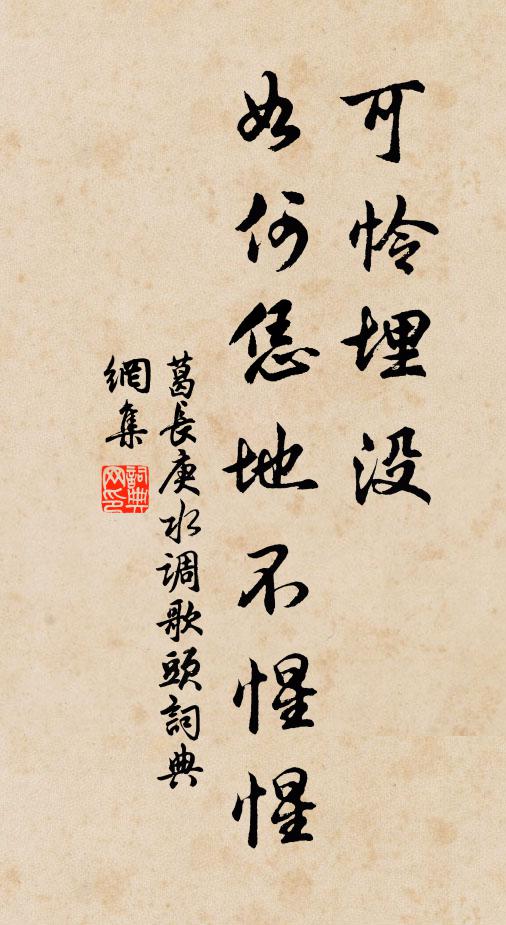 可怜埋没
如何恁地不惺惺
葛長庚水调歌頭詞典
網集
詞典
网印